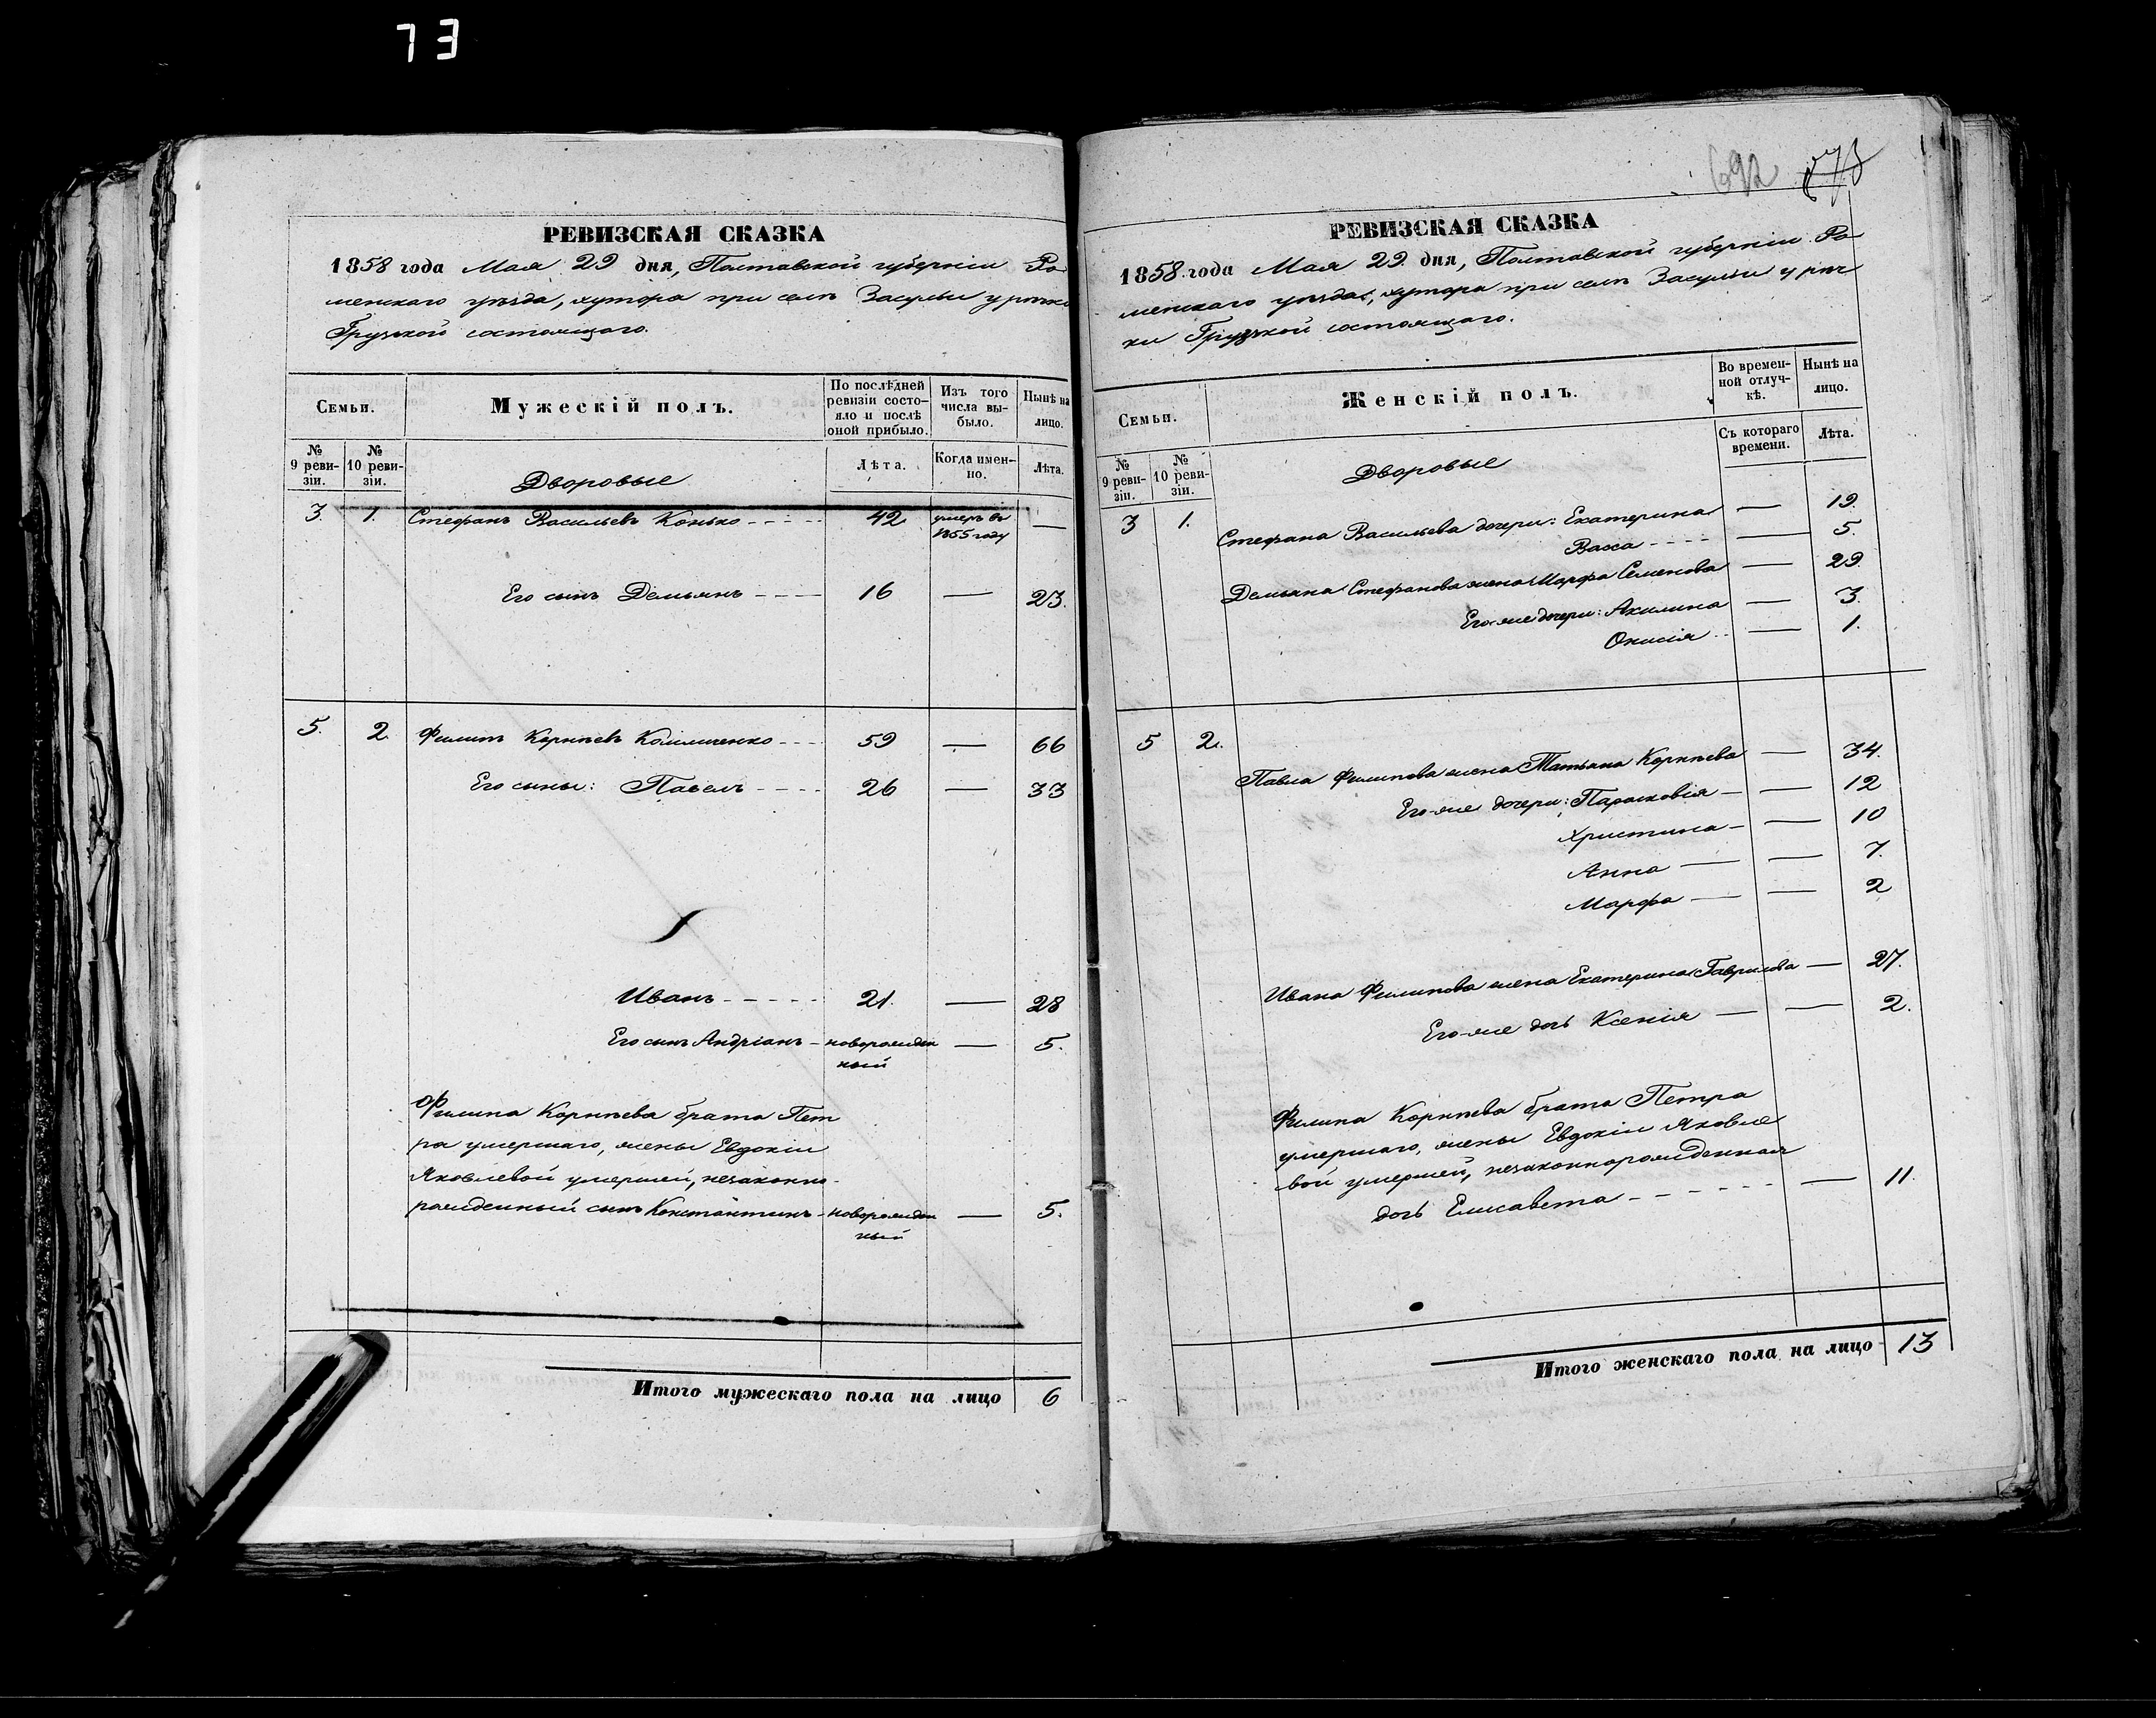 73
РЕВИЗСКАЯ СКАЗКА
1858 года Мая 29 дня, Полтавской губерніи Ро
менскаго уѣзда, хутора при селѣ Засульи у рѣчки
Грузской состоящаго.
Семьи.
Мужескій полъ.
По послѣдней ревизіи состояло и послѣ оной прибыло.
Изъ того числа выбыло.
Нынѣ на лицо.
№ 9 ревизіи.
№ 10 ревизіи.
Дворовые
Лѣта.
Когда именно.
Лѣта.
3. 1. Стефанъ Васильевъ Конько - - - - 42 умеръ въ —
1855 году
Его сынъ Демьянъ - - - 16 — 23.
5. 2. Филипъ Корнѣевъ - - - 59 — 66
Его сыны: Павелъ - - - - 26 — 33
Иванъ - - - - - 21. — 28
Его сынъ Андріанъ - новорожден — 5.
ный
Филипа Корнѣева брата Пет
ра умершаго, жены Евдокіи
Яковлевой умершей, незаконно-
рожденный сынъ Константинъ - новорожден — 5.
ный
Итого мужескаго пола на лицо 6
692
РЕВИЗСКАЯ СКАЗКА
1858 года Мая 29. дня, Полтавской губерніи Ро
менскаго уѣзда, хутора при селѣ Засульи у рѣч
ки Грузской состоящаго.
Семьи.
Женскій полъ.
Во временной отлучкѣ.
Нынѣ на лицо.
№ 9 ревизіи.
№ 10 ревизіи.
Дворовые
Съ котораго времени.
Лѣта.
3 1. Стефана Васильева дочери: Екатерина — 19.
Васса - - - - — 5.
Демьяна Стефанова жена Марфа Семенова — 29
Его-же дочери: Акилина — 3.
Онисія - - — 1.
5 2. Павла Филипова жена Татьяна Корнѣева — 34.
Его-же дочери: Парасковія — — 12
Христина — — 10
Анна — — 7.
Марфа — — 2
Ивана Филипова жена Екатерина Гаврилова — 27.
Его-же дочь Ксенія — — 2.
Филипа Корнѣева брата Петра
умершаго, жены Евдокіи Яковле
вой умершей, незаконнорожденная
дочь Елисавета - - - - - - — 11.
Итого женскаго пола на лицо 13